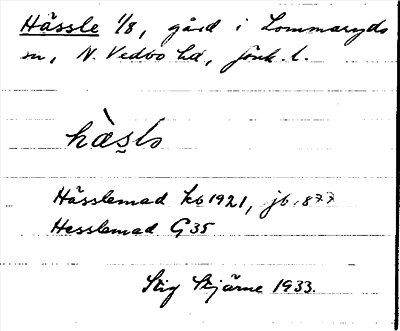 Hässle 1/8, gård i Lommaryds
sn, N. Vedbo hd, Jönk. l.
hàslo
Hässlemad kb 1921, jb 1877
Hesslemad G 35
Stig Stjärne 1933.